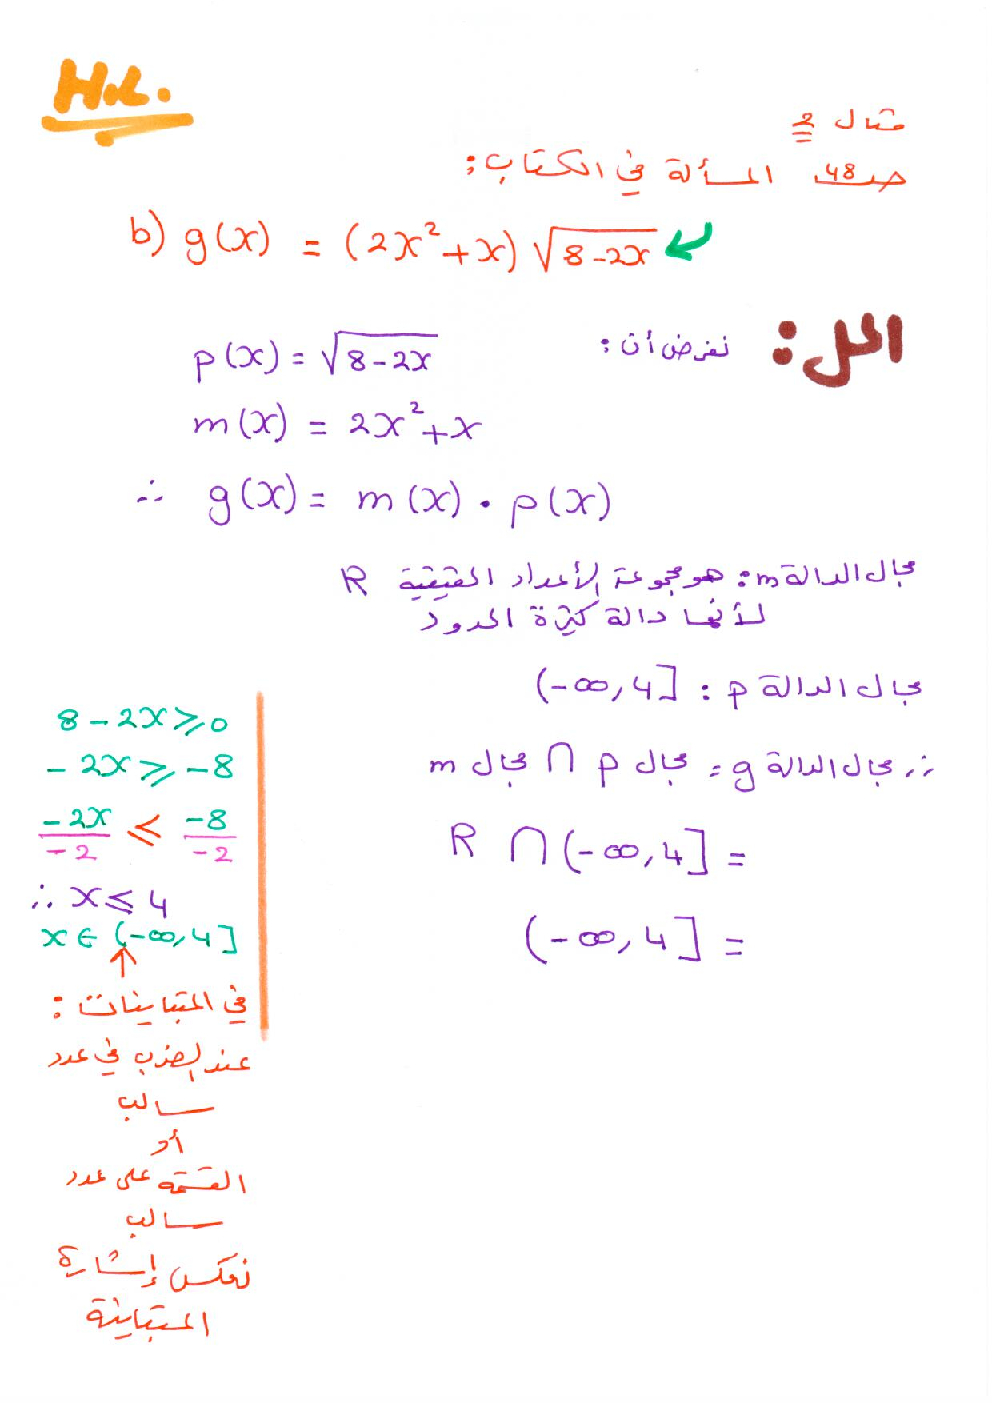 H.L.
مثال 2
صـ 48 المسألة في الكتاب:
b) g(x) = (2x²+x) √(8-2x)
الحل:
نفرض أن:
p(x) = √(8-2x)
m(x) = 2x²+x
∴ g(x) = m(x) . p(x)
مجال الدالة m: هو مجموعة الأعداد الحقيقية R
لأنها دالة كثيرة الحدود
مجال الدالة p : (-∞,4]
∴ مجال الدالة g = مجال p ∩ مجال m
= R ∩ (-∞,4]
= (-∞,4]
8-2x ≥ 0
-2x ≥ -8
-2x/-2 ≤ -8/-2
∴ x ≤ 4
x ∈ (-∞,4]
↑
في المتباينات :
عند الضرب في عدد
سالب
أو
القسمة على عدد
سالب
نعكس إشارة
المتباينة